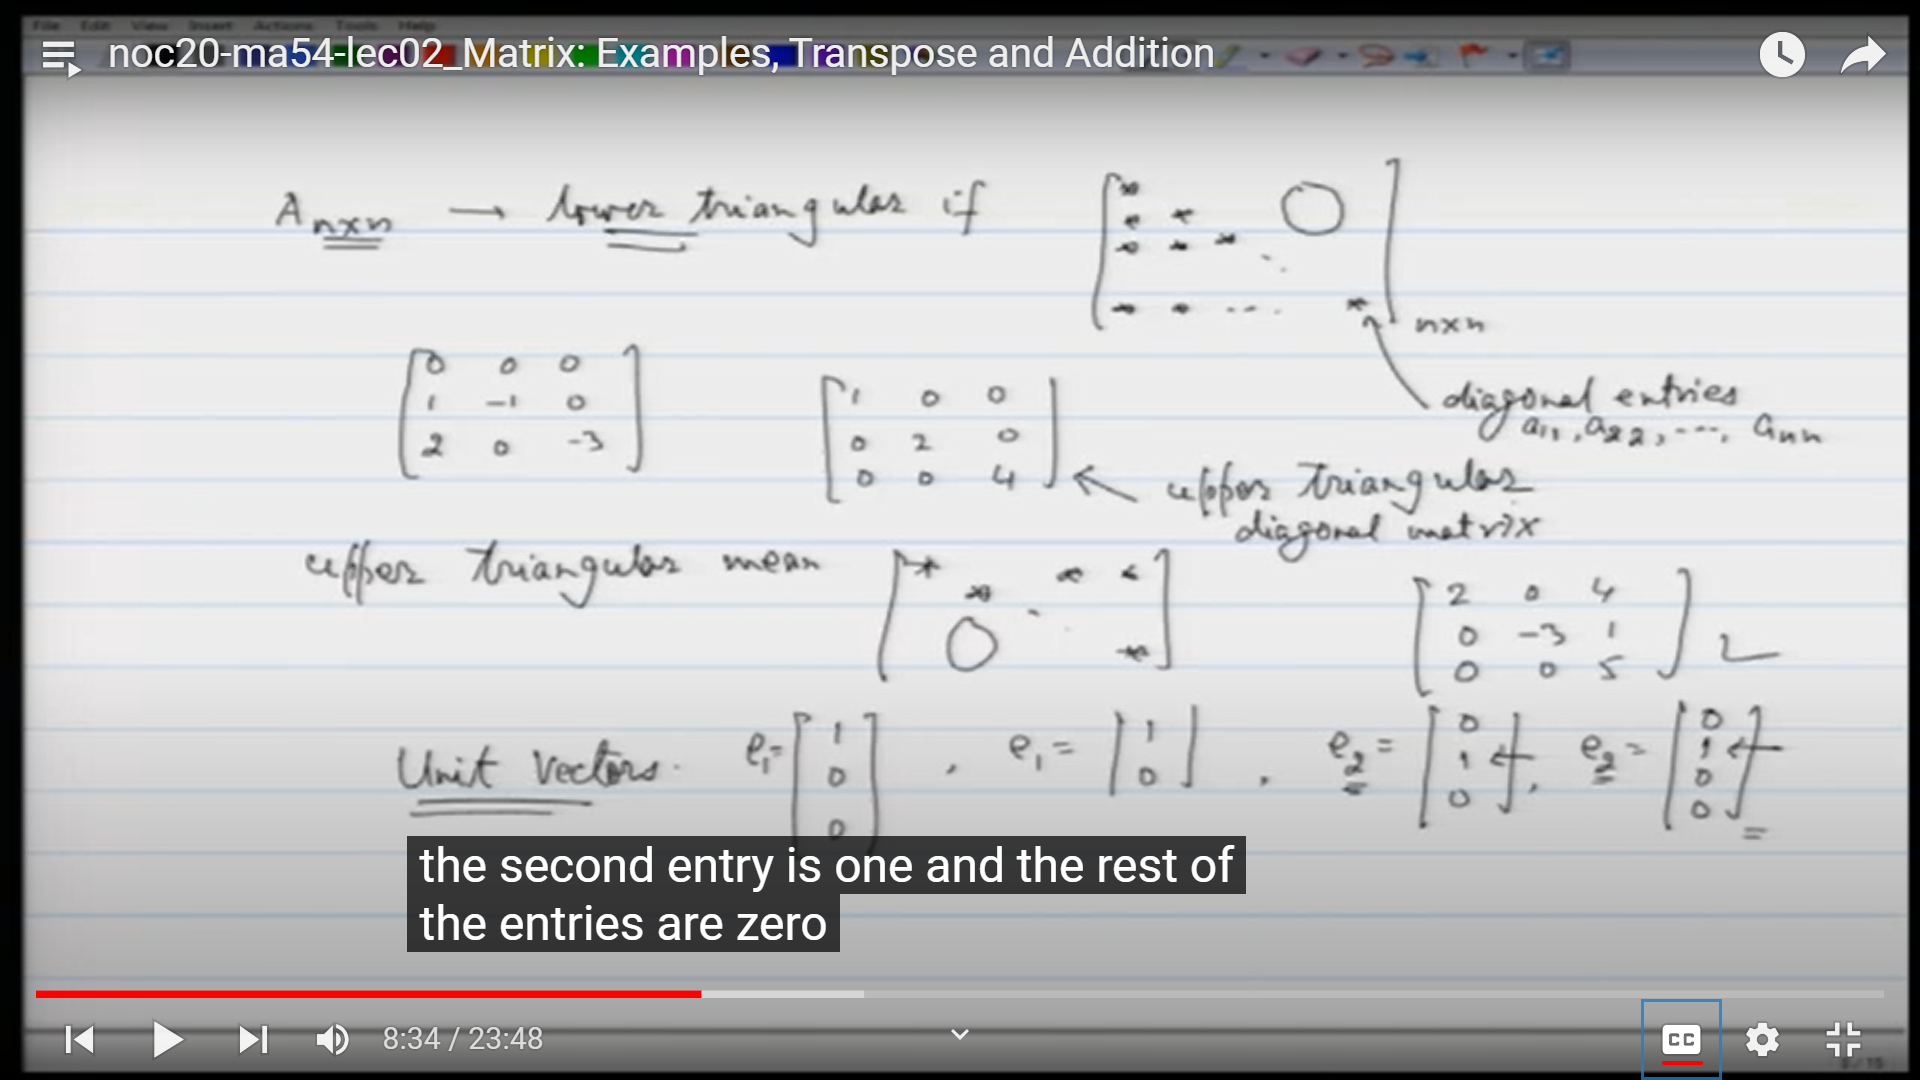 File Edit View Insert Actions Tools Help
noc20-ma54-lec02_Matrix: Examples, Transpose and Addition
A n×n → lower triangular if [ * 0
* *
* * * ⋱
* * ... * ] n×n
diagonal entries
a11, a22, ..., ann
[ 0 0 0
1 -1 0
2 0 -3 ]
[ 1 0 0
0 2 0
0 0 4 ] ← upper triangular
diagonal matrix
upper triangular mean [ * * *
* ⋱
0 * ]
[ 2 0 4
0 -3 1
0 0 5 ]
Unit Vectors. e1 = [ 1
0
0 ] , e1 = [ 1
0 ] , e2 = [ 0
1 ←
0 ] , e2 = [ 0
1 ←
0
0 ]
the second entry is one and the rest of
the entries are zero
8:34 / 23:48
CC